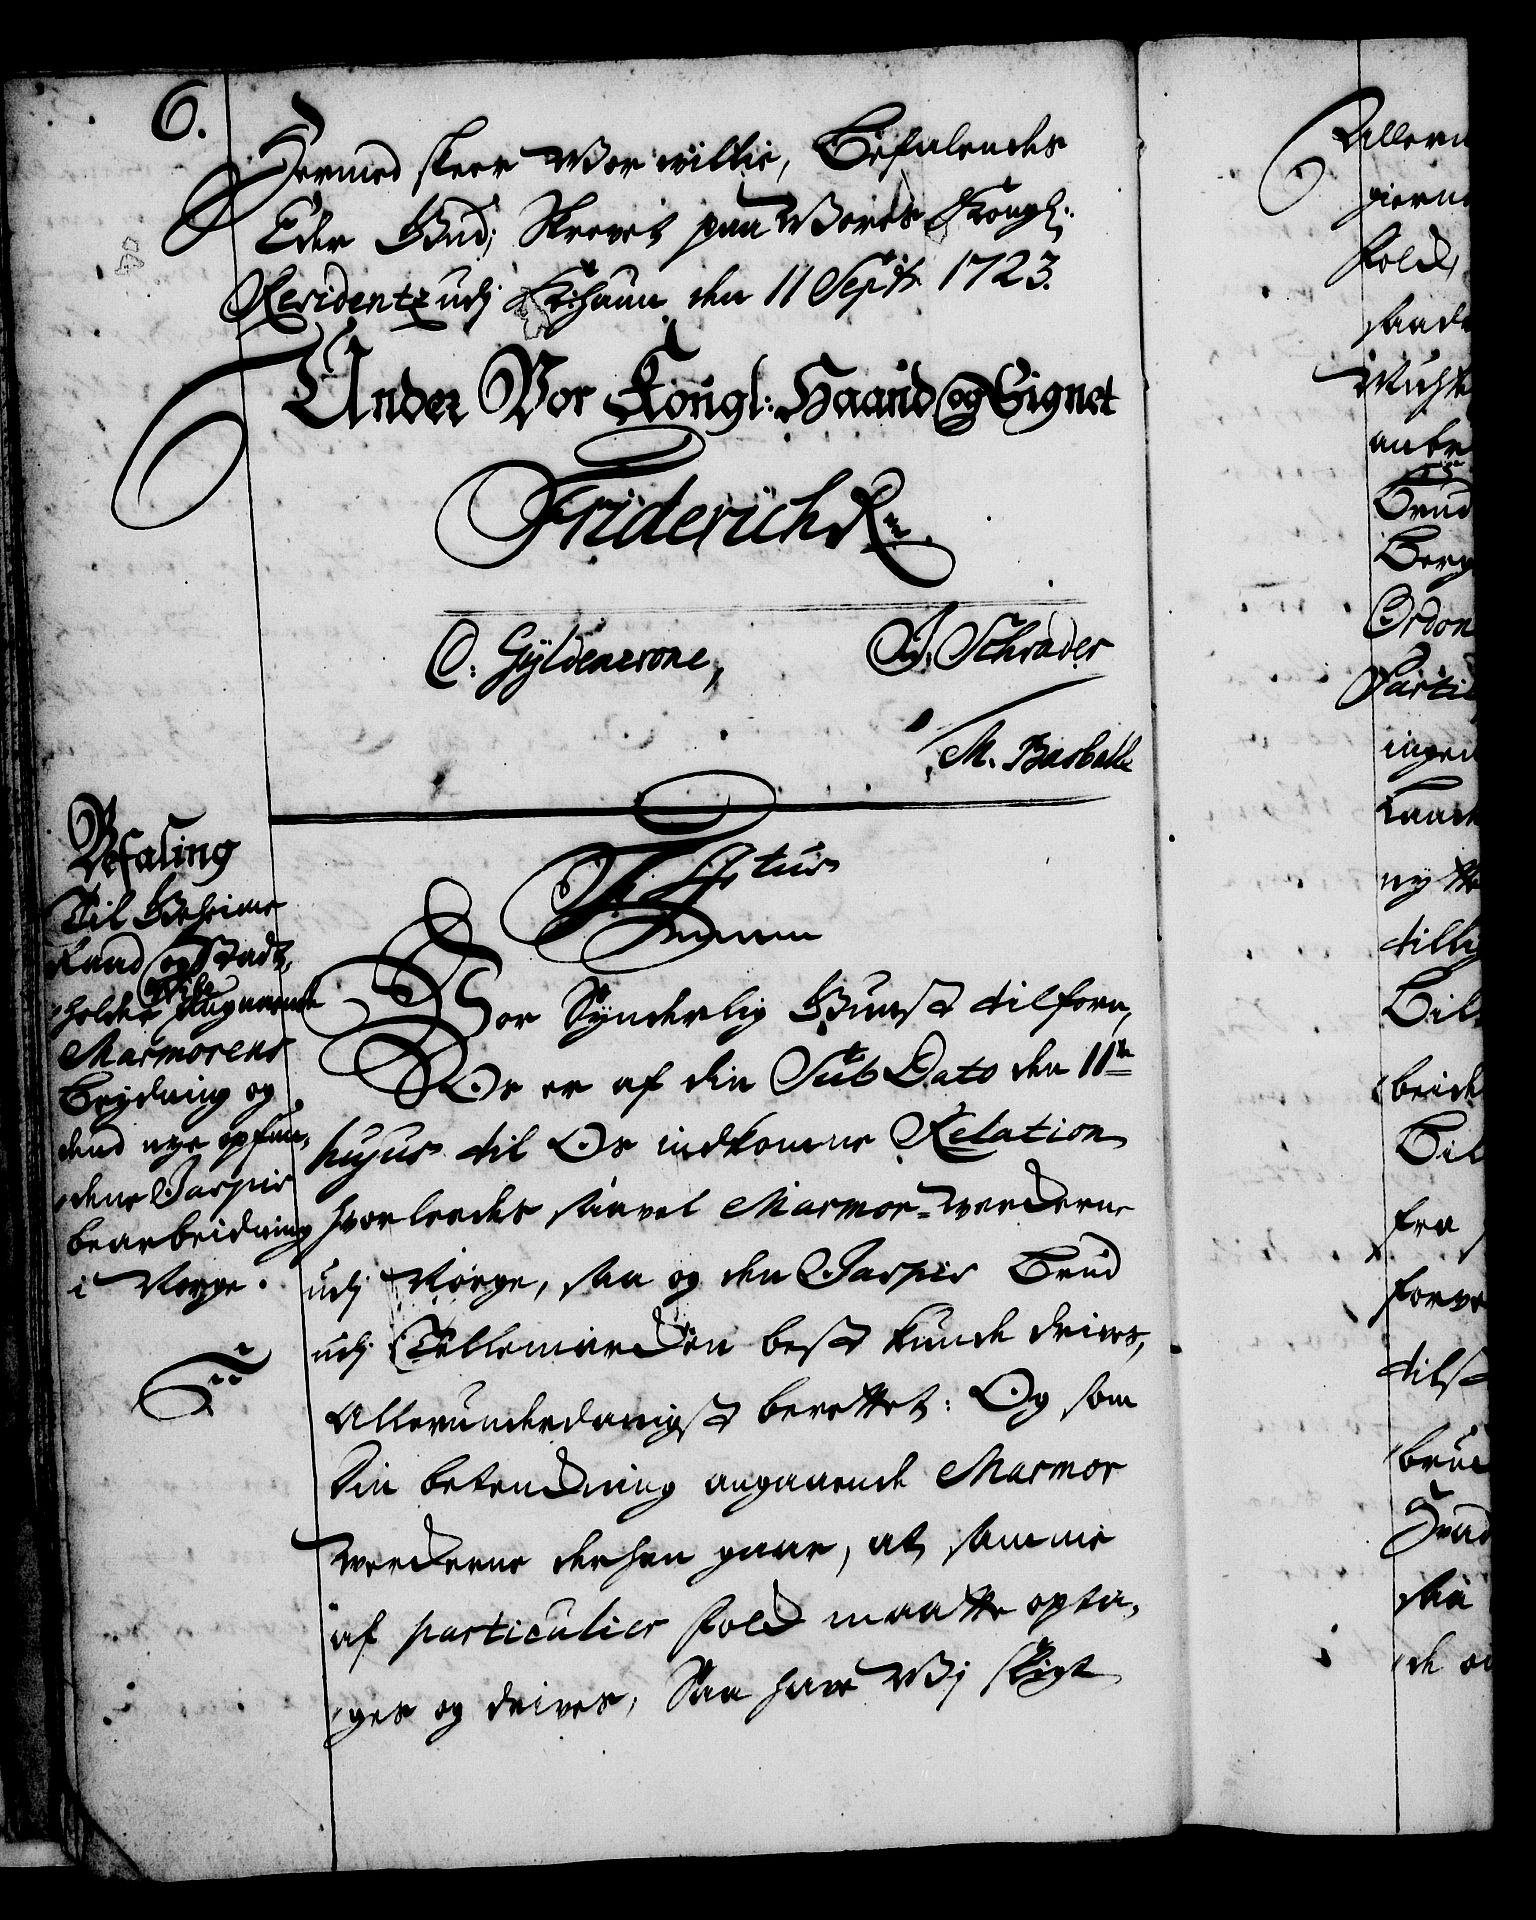 6.
Hermed skeer Vor villie, Befalendes
Eder Gud, Skrevet paa Vores Kongl:
Residentz udj Kiøhaun den 11 Septr. 1723.
Under Vor Kongl: Haand og Signet
Friderich R
C. Gyldencrone, J. Schrader
M. Basballe
Befaling
Til Geheime
Raad og Stadt-
holder Wibe Angaaende
Marmorens
Brydning og
dend nye opfun-
dene Jaspis
bearbeidning
i Norge.
F. 4tus
Vor Synderlig Gunst tilforn,
Os er af din Sub Dato den 11te
hujus til Os indkomne Relation
hvorledes saavel Marmor-werckerne
udj Norge, saa og den Jaspis Brud
udj Tellemarcken best kunde drives,
Allerunderdanigst berettet: Og som
din betenckning angaaende Marmor
werckerne derhen gaar, at samme
af particulier folck maatte opta-
ges og drives, Saa have Vj skiøt